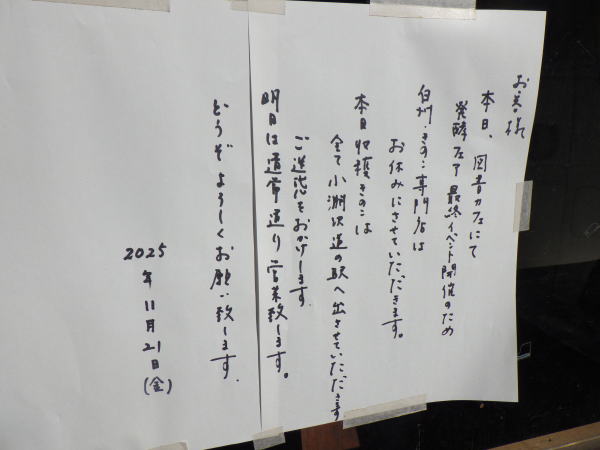 お客様
本日、図書カフェにて
発酵フェア最終イベント開催のため
白州・きのこ専門店は
お休みにさせていただきます。
本日収穫きのこは
全て小淵沢道の駅へ出させていただきます
ご迷惑をおかけします。
明日は通常通り営業致します。
どうぞよろしくお願い致します.
2025年11月21日(金)